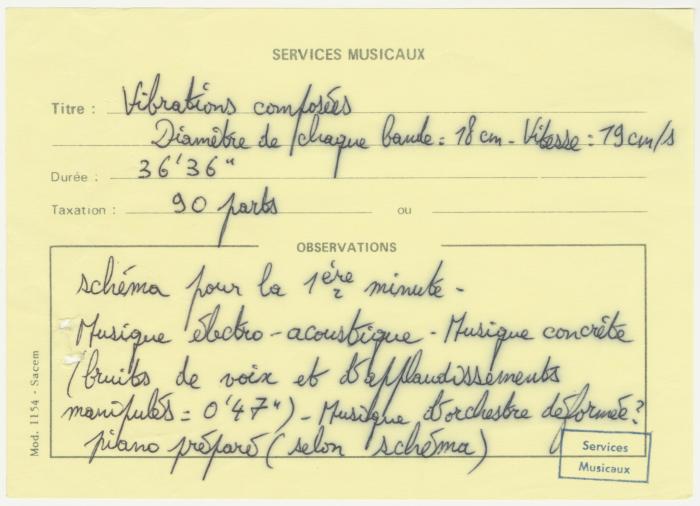 SERVICES MUSICAUX
Titre : Vibrations composées
Diamètre de chaque bande = 18 cm - Vitesse = 19 cm/s
Durée : 36'36"
Taxation : 90 parts ou
OBSERVATIONS
schéma pour la 1ère minute -
Musique électro-acoustique - Musique concrète
(bruits de voix et d'applaudissements
manipulés = 0'47") - Musique d'orchestre déformée?
piano préparé (selon schéma)
Services
Musicaux
Mod. 1154 - Sacem